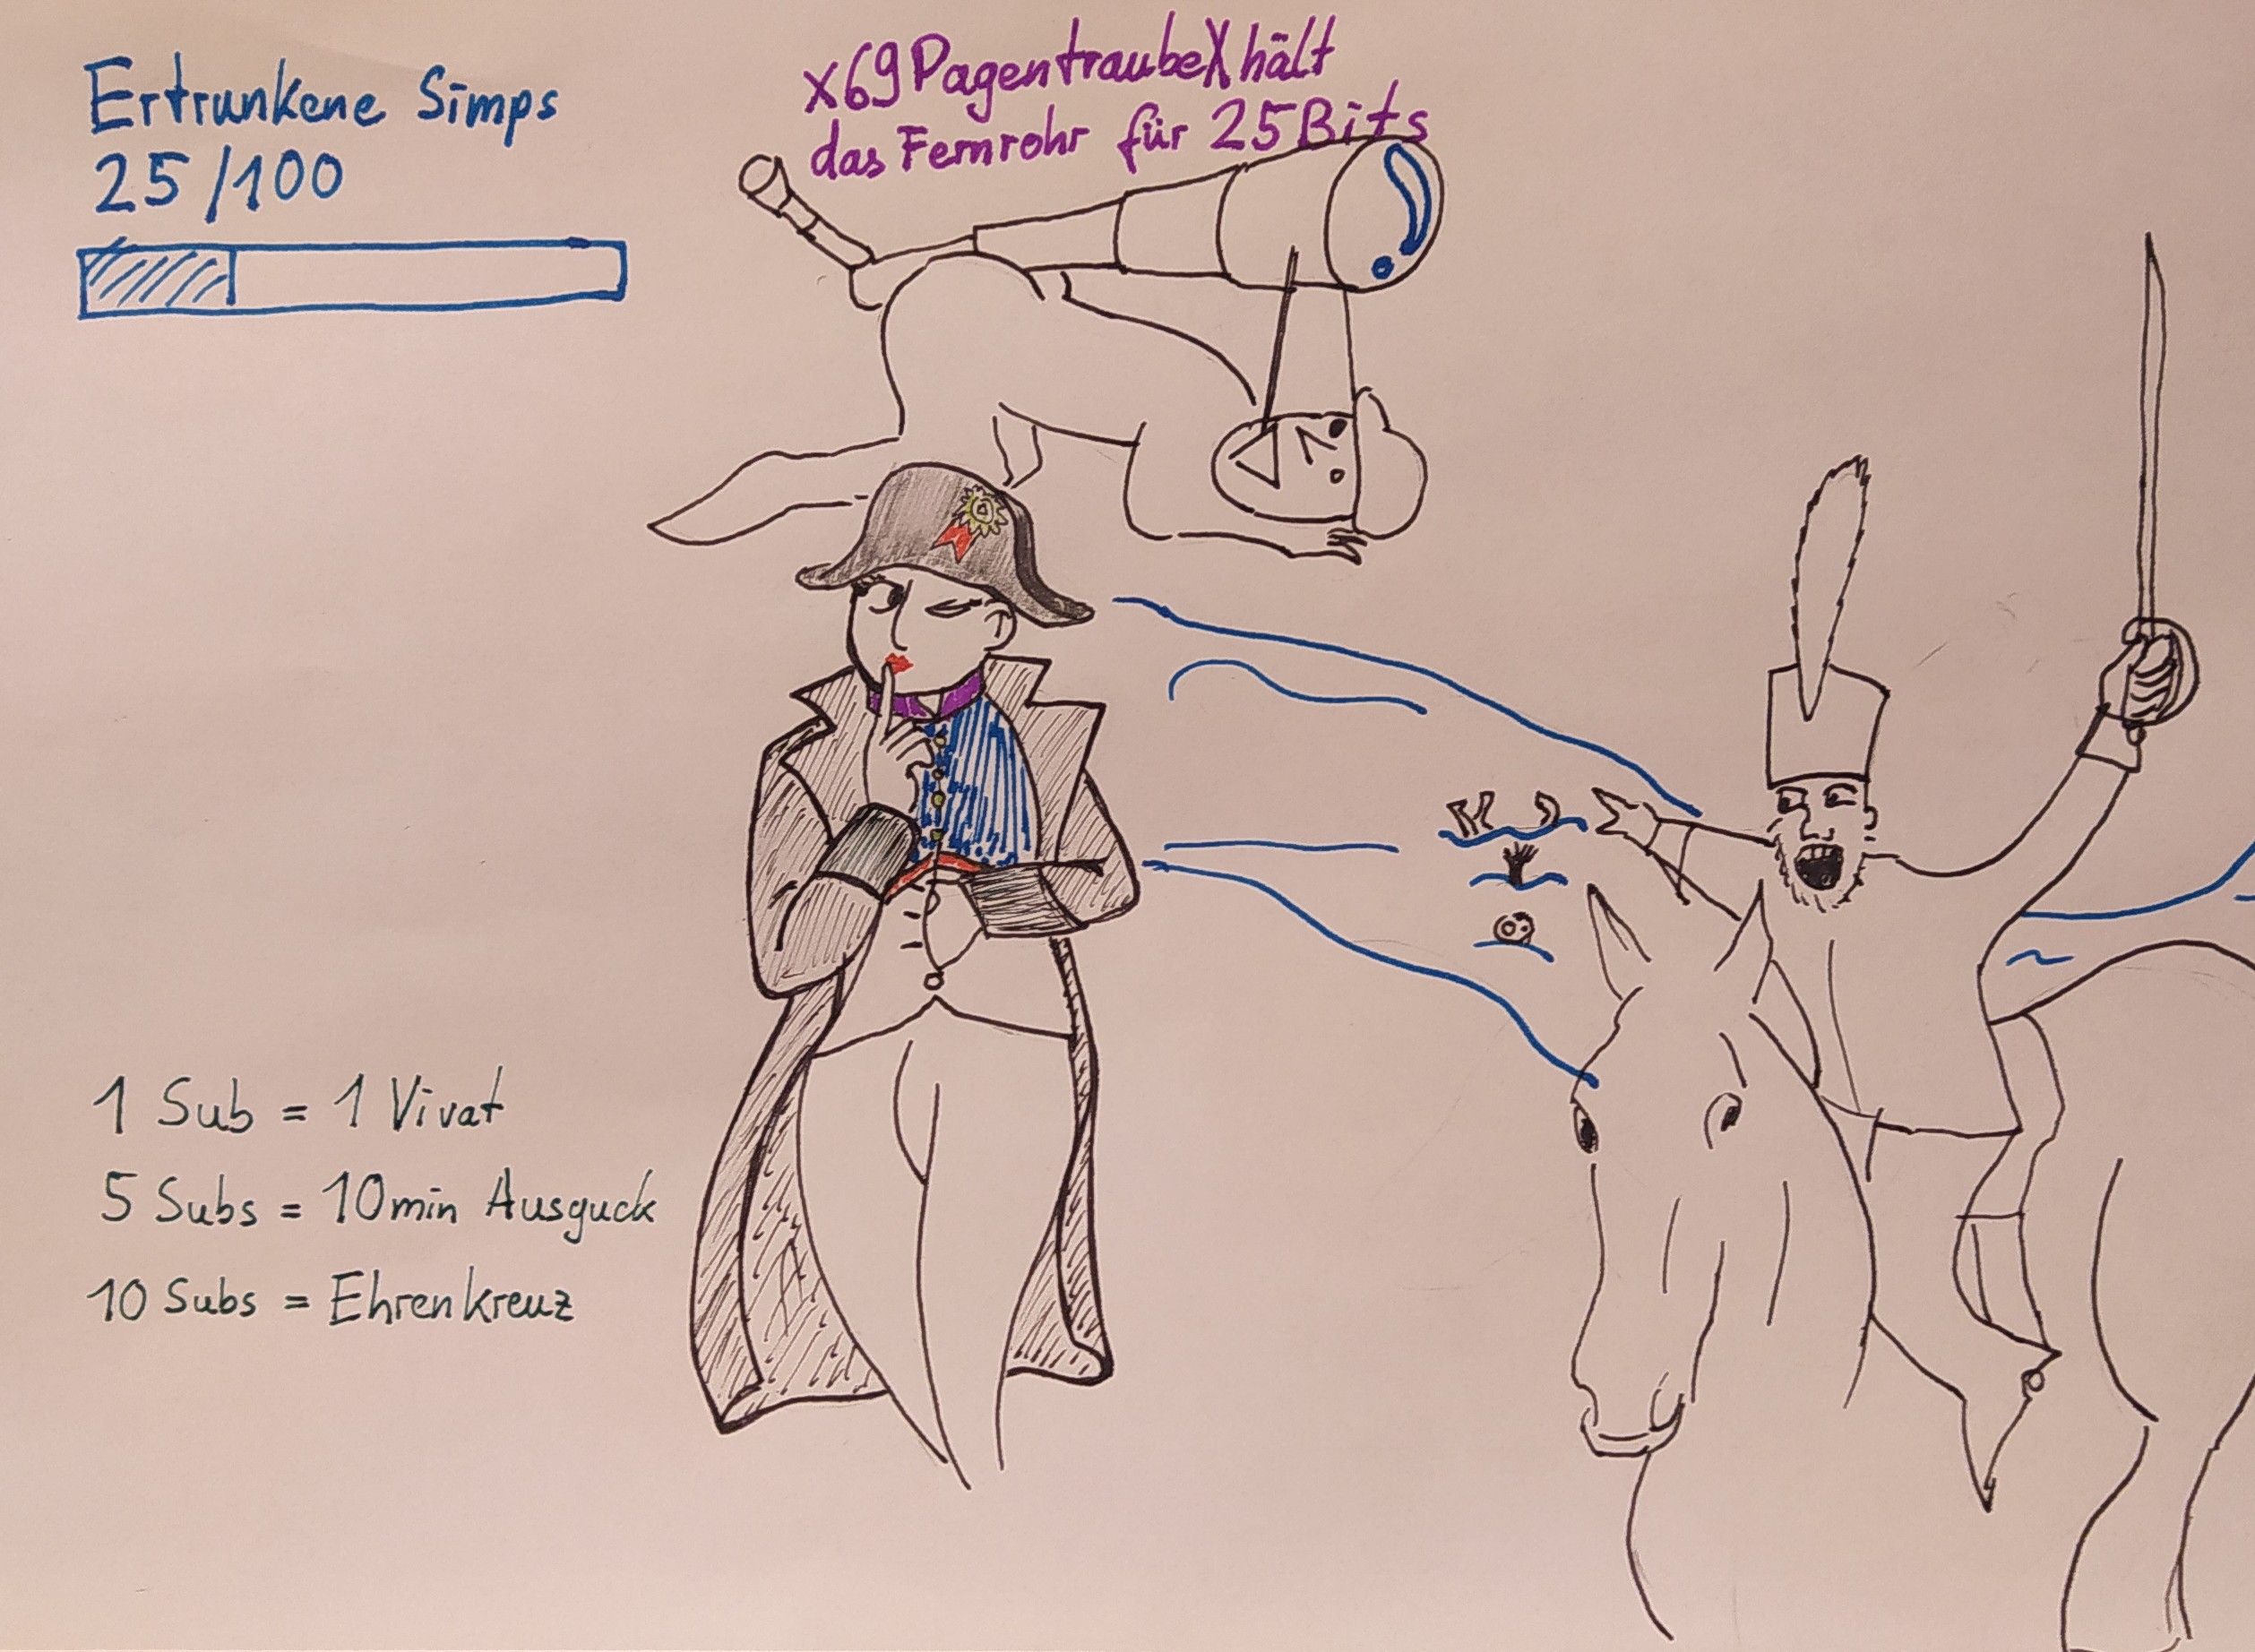 Ertrunkene Simps
25/100
x69PagentraubeX hält
das Fernrohr für 25 Bits
1 Sub = 1 Vivat
5 Subs = 10min Ausguck
10 Subs = Ehrenkreuz